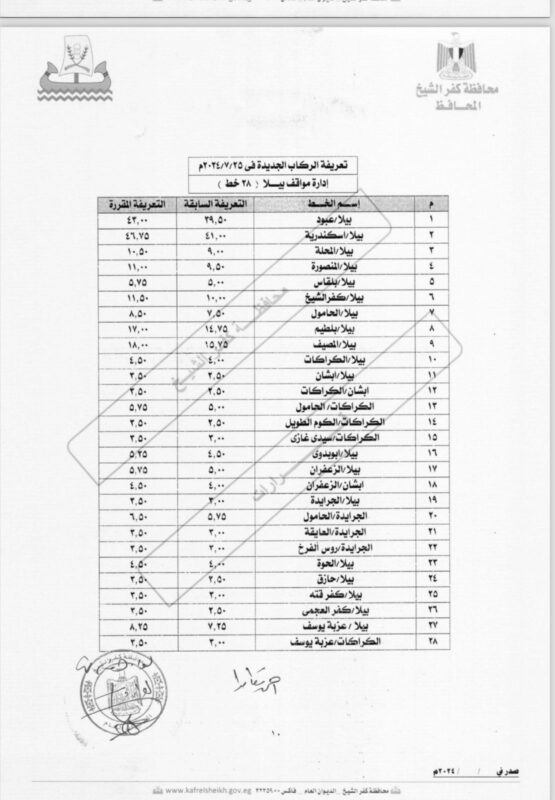 محافظة كفر الشيخ
المحافظ
تعريفة الركاب الجديدة فى ٢٠٢٤/٧/٢٥م
إدارة مواقف بيلا ( ٢٨ خط )
م إسم الخط التعريفة السابقة التعريفة المقررة
١ بيلا/عبود ٣٩,٥٠ ٤٣,٠٠
٢ بيلا/اسكندرية ٤١,٠٠ ٤٦,٧٥
٣ بيلا/المحلة ٩,٠٠ ١٠,٥٠
٤ بيلا/المنصورة ٩,٥٠ ١١,٠٠
٥ بيلا/بلقاس ٥,٠٠ ٥,٧٥
٦ بيلا/كفرالشيخ ١٠,٠٠ ١١,٥٠
٧ بيلا/الحامول ٧,٥٠ ٨,٥٠
٨ بيلا/بلطيم ١٤,٧٥ ١٧,٠٠
٩ بيلا/المصيف ١٥,٧٥ ١٨,٠٠
١٠ بيلا/الكراكات ٤,٠٠ ٤,٥٠
١١ بيلا/ابشان
١٢ ابشان/الكراكات
١٣ الكراكات/الحامول ٥,٠٠ ٥,٧٥
١٤ الكراكات/الكوم الطويل
١٥ الكراكات/سيدى غازى ٣,٠٠ ٣,٥٠
١٦ بيلا/ابوبدوى ٤,٥٠ ٥,٢٥
١٧ بيلا/الزعفران ٥,٠٠ ٥,٧٥
١٨ ابشان/الزعفران ٤,٠٠ ٤,٥٠
١٩ بيلا/الجرايدة ٣,٠٠ ٣,٥٠
٢٠ الجرايدة/الحامول ٥,٧٥ ٦,٥٠
٢١ الجرايدة/العايقة ٣,٠٠ ٣,٥٠
٢٢ الجرايدة/روس الفرخ ٣,٠٠ ٣,٥٠
٢٣ بيلا/الحوة ٤,٠٠ ٤,٥٠
٢٤ بيلا/حازق
٢٥ بيلا/كفر قته ٣,٠٠ ٣,٥٠
٢٦ بيلا/كفر العجمى
٢٧ بيلا / عزبة يوسف ٧,٢٥ ٨,٢٥
٢٨ الكراكات/عزبة يوسف ٣,٠٠ ٣,٥٠
١٠
صدر في / / ٢٠٢٤م
محافظة كفر الشيخ _ الديوان العام _ فاكس ٣٢٢٥٩٠٠ www.kafrelsheikh.gov.eg